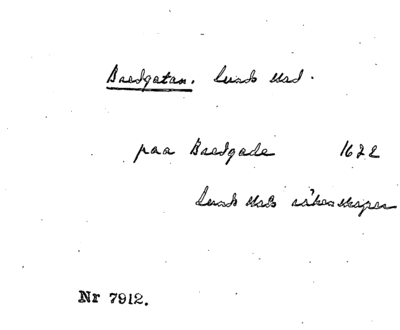 Bredgatan. Lunds stad.
paa Bredgade 1622
Lunds stads räkenskaper
Nr 7912.